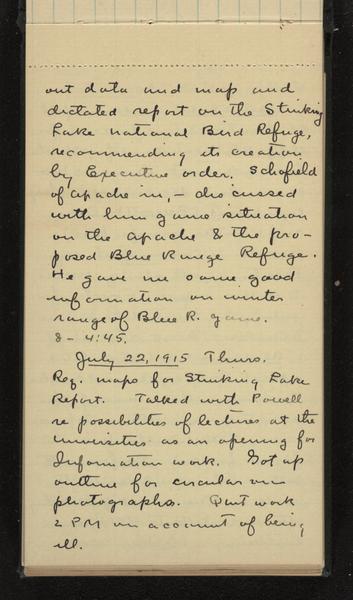 out data and map and
dictated report on the Stinking
Lake National Bird Refuge,
recommending its creation
by Executive order. Schofield
of Apache in, – discussed
with him game situation
on the Apache & the pro-
posed Blue Range Refuge.
He gave me some good
information on winter
range of Blue R. game.
8 – 4:45.
July 22, 1915 Thurs.
Req. maps for Stinking Lake
Report. Talked with Powell
re possibilities of lectures at the
universities as an opening for
Information work. Got up
outline for circular on
photographs. Quit work
2 PM on account of being
ill.